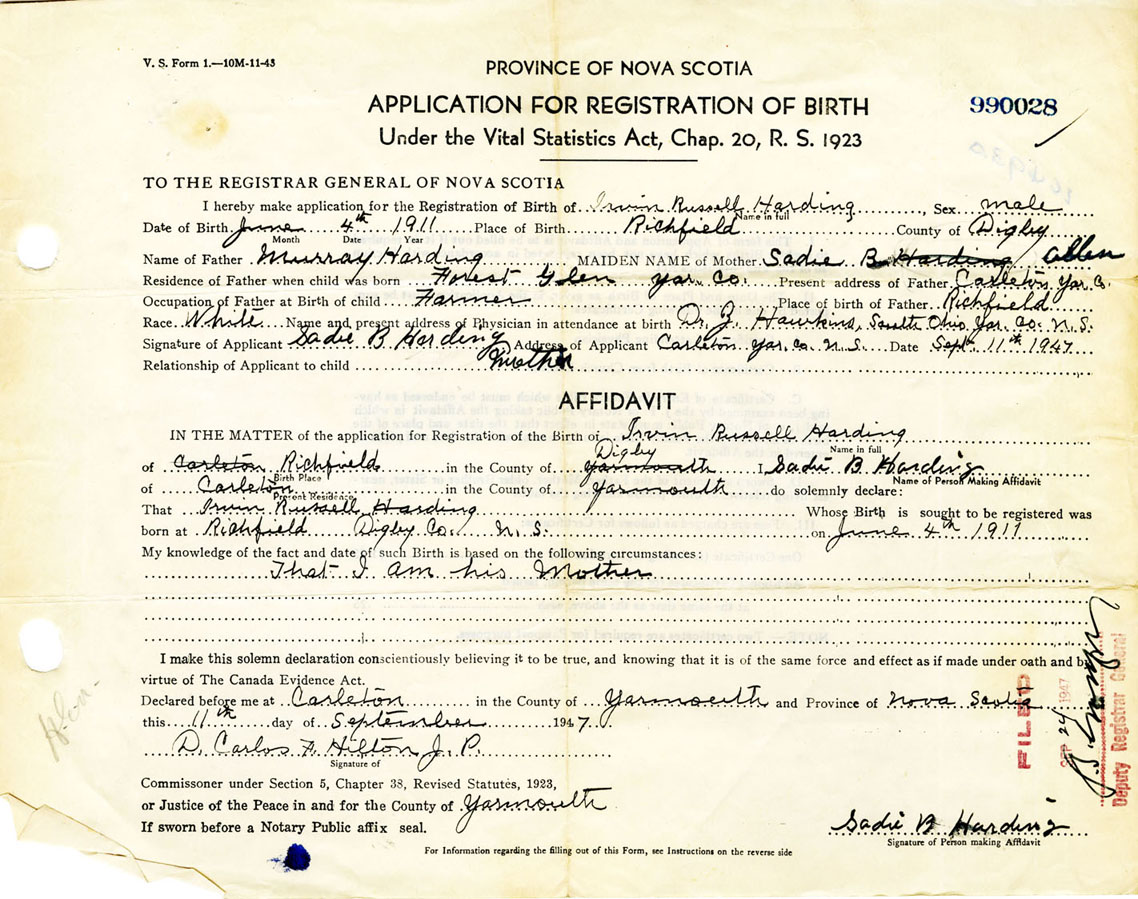 V. S. Form 1.—10M-11-43
PROVINCE OF NOVA SCOTIA
APPLICATION FOR REGISTRATION OF BIRTH
990028
Under the Vital Statistics Act, Chap. 20, R. S. 1923
TO THE REGISTRAR GENERAL OF NOVA SCOTIA
I hereby make application for the Registration of Birth of Irwin Russell Harding, Sex male
Name in full
Date of Birth June 4th 1911 Place of Birth Richfield County of Digby
Month Date Year
Name of Father Murray Harding MAIDEN NAME of Mother Sadie B Harding / Allen
Residence of Father when child was born Forest Glen Yar. Co. Present address of Father Carleton Yar. Co.
Occupation of Father at Birth of child Farmer Place of birth of Father Richfield
Race White Name and present address of Physician in attendance at birth Dr. Z. Hawkins, South Ohio, Yar. Co. N. S.
Signature of Applicant Sadie B Harding Address of Applicant Carleton Yar. Co. N. S. Date Sept. 11th 1947
Relationship of Applicant to child Mother
AFFIDAVIT
IN THE MATTER of the application for Registration of the Birth of Irwin Russell Harding
Name in full
of Carleton Richfield in the County of Yarmouth Digby I Sadie B Harding
Birth Place
Name of Person Making Affidavit
of Carleton in the County of Yarmouth do solemnly declare:
Present Residence
That Irwin Russell Harding Whose Birth is sought to be registered was
born at Richfield Digby Co. N. S. on June 4th 1911
My knowledge of the fact and date of such Birth is based on the following circumstances:
That I am his Mother
I make this solemn declaration conscientiously believing it to be true, and knowing that it is of the same force and effect as if made under oath and by
virtue of The Canada Evidence Act.
Declared before me at Carleton in the County of Yarmouth and Province of Nova Scotia
this 11th day of September 1947
D. Carlos F. Hilton J. P.
Signature of
Commissoner under Section 5, Chapter 38, Revised Statutes, 1923,
or Justice of the Peace in and for the County of Yarmouth
If sworn before a Notary Public affix seal.
FILED
SEP 24 1947
Deputy Registrar General
Sadie B Harding
Signature of Person making Affidavit
For Information regarding the filling out of this Form, see Instructions on the reverse side